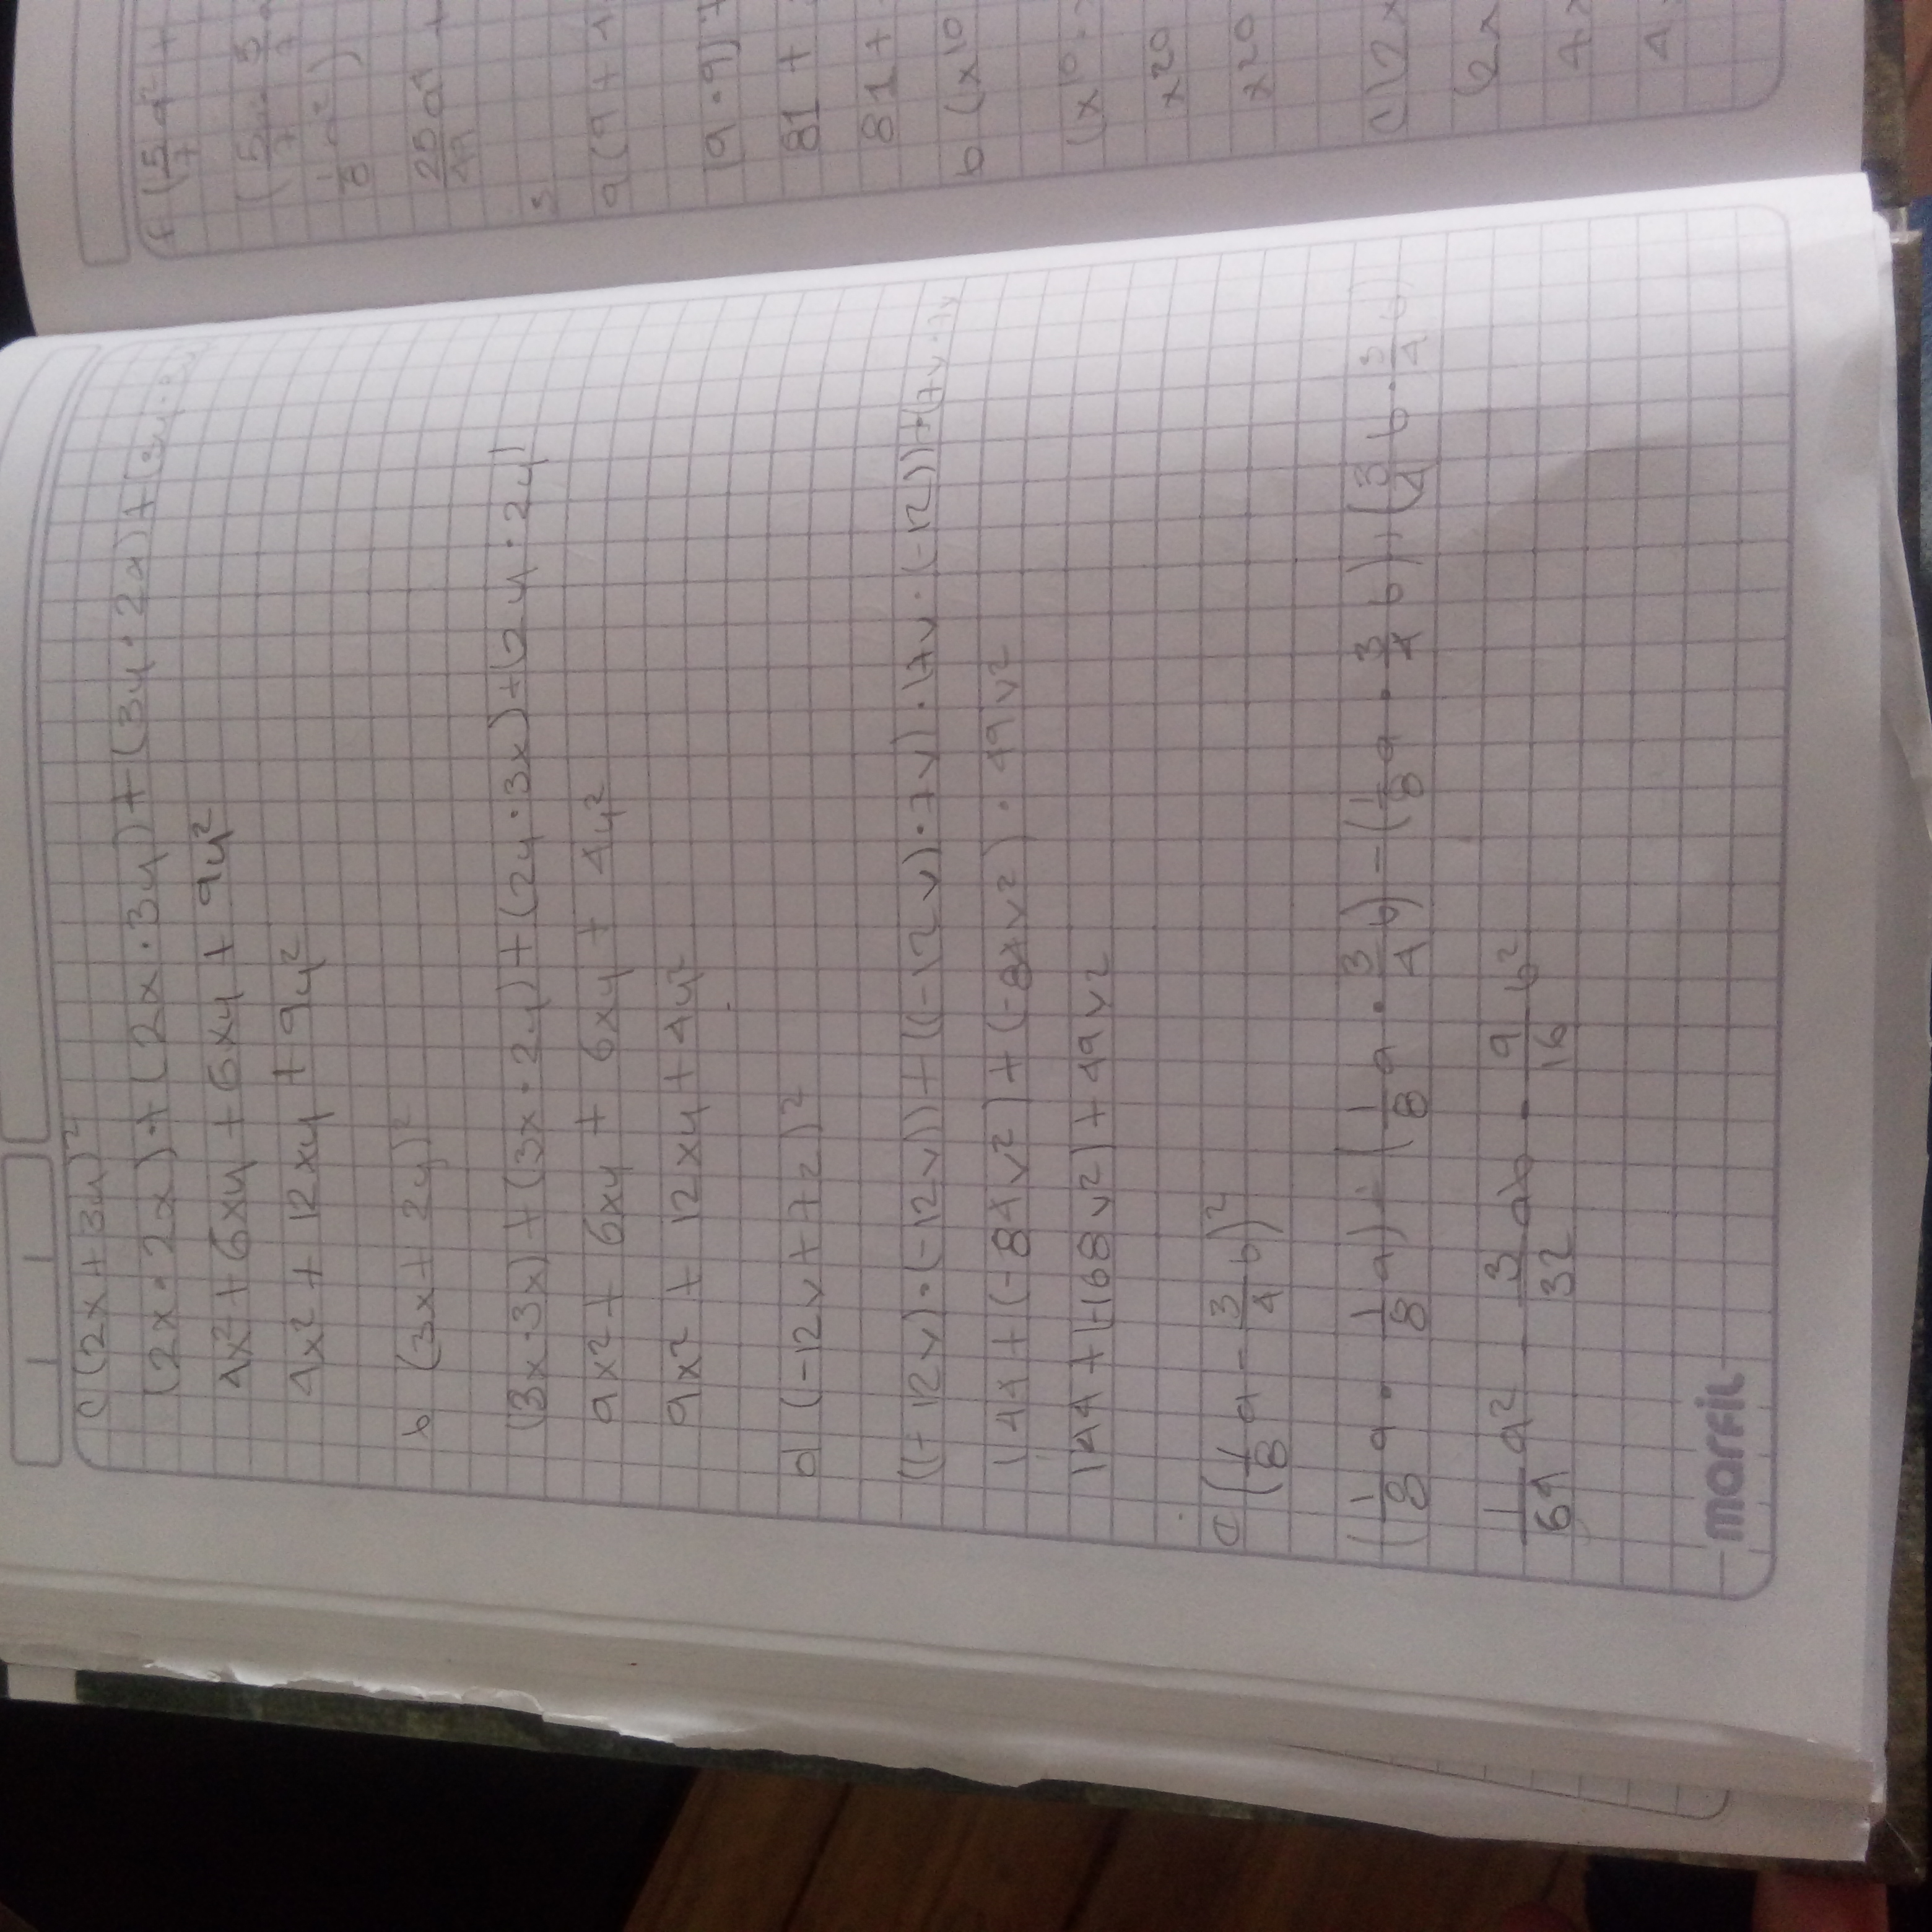 c (2x + 3y)²
(2x · 2x) + (2x · 3y) + (3y · 2x) + (3y · 3y)
4x² + 6xy + 6xy + 9y²
4x² + 12xy + 9y²
b (3x + 2y)²
(3x · 3x) + (3x · 2y) + (2y · 3x) + (2y · 2y)
9x² + 6xy + 6xy + 4y²
9x² + 12xy + 4y²
d (-12v + 7z)²
((-12v) · (-12v)) + ((-12v) · 7v) · (7v · (-12)) + (7v · 7v
144 + (-84v²) + (-84v²) · 49v²
144 + (-168v²) + 49v²
(1/8 a - 3/4 b)²
(1/8 a · 1/8 a) - (1/8 a · 3/4 b) - (1/8 a · 3/4 b) + (3/4 b · 3/4 b)
1/64 a² - 3/32 ab - 9/16 b²
marfil
f (5/7 a² +
(5/7 · 5/7
1/8 a²)
25/49 a⁴ +
3
a (9 + 4
(9 · 9) +
81 +
81 +
b (x¹⁰
(x¹⁰ ·
x²⁰
x²⁰
c (2x
(2x
4x
4